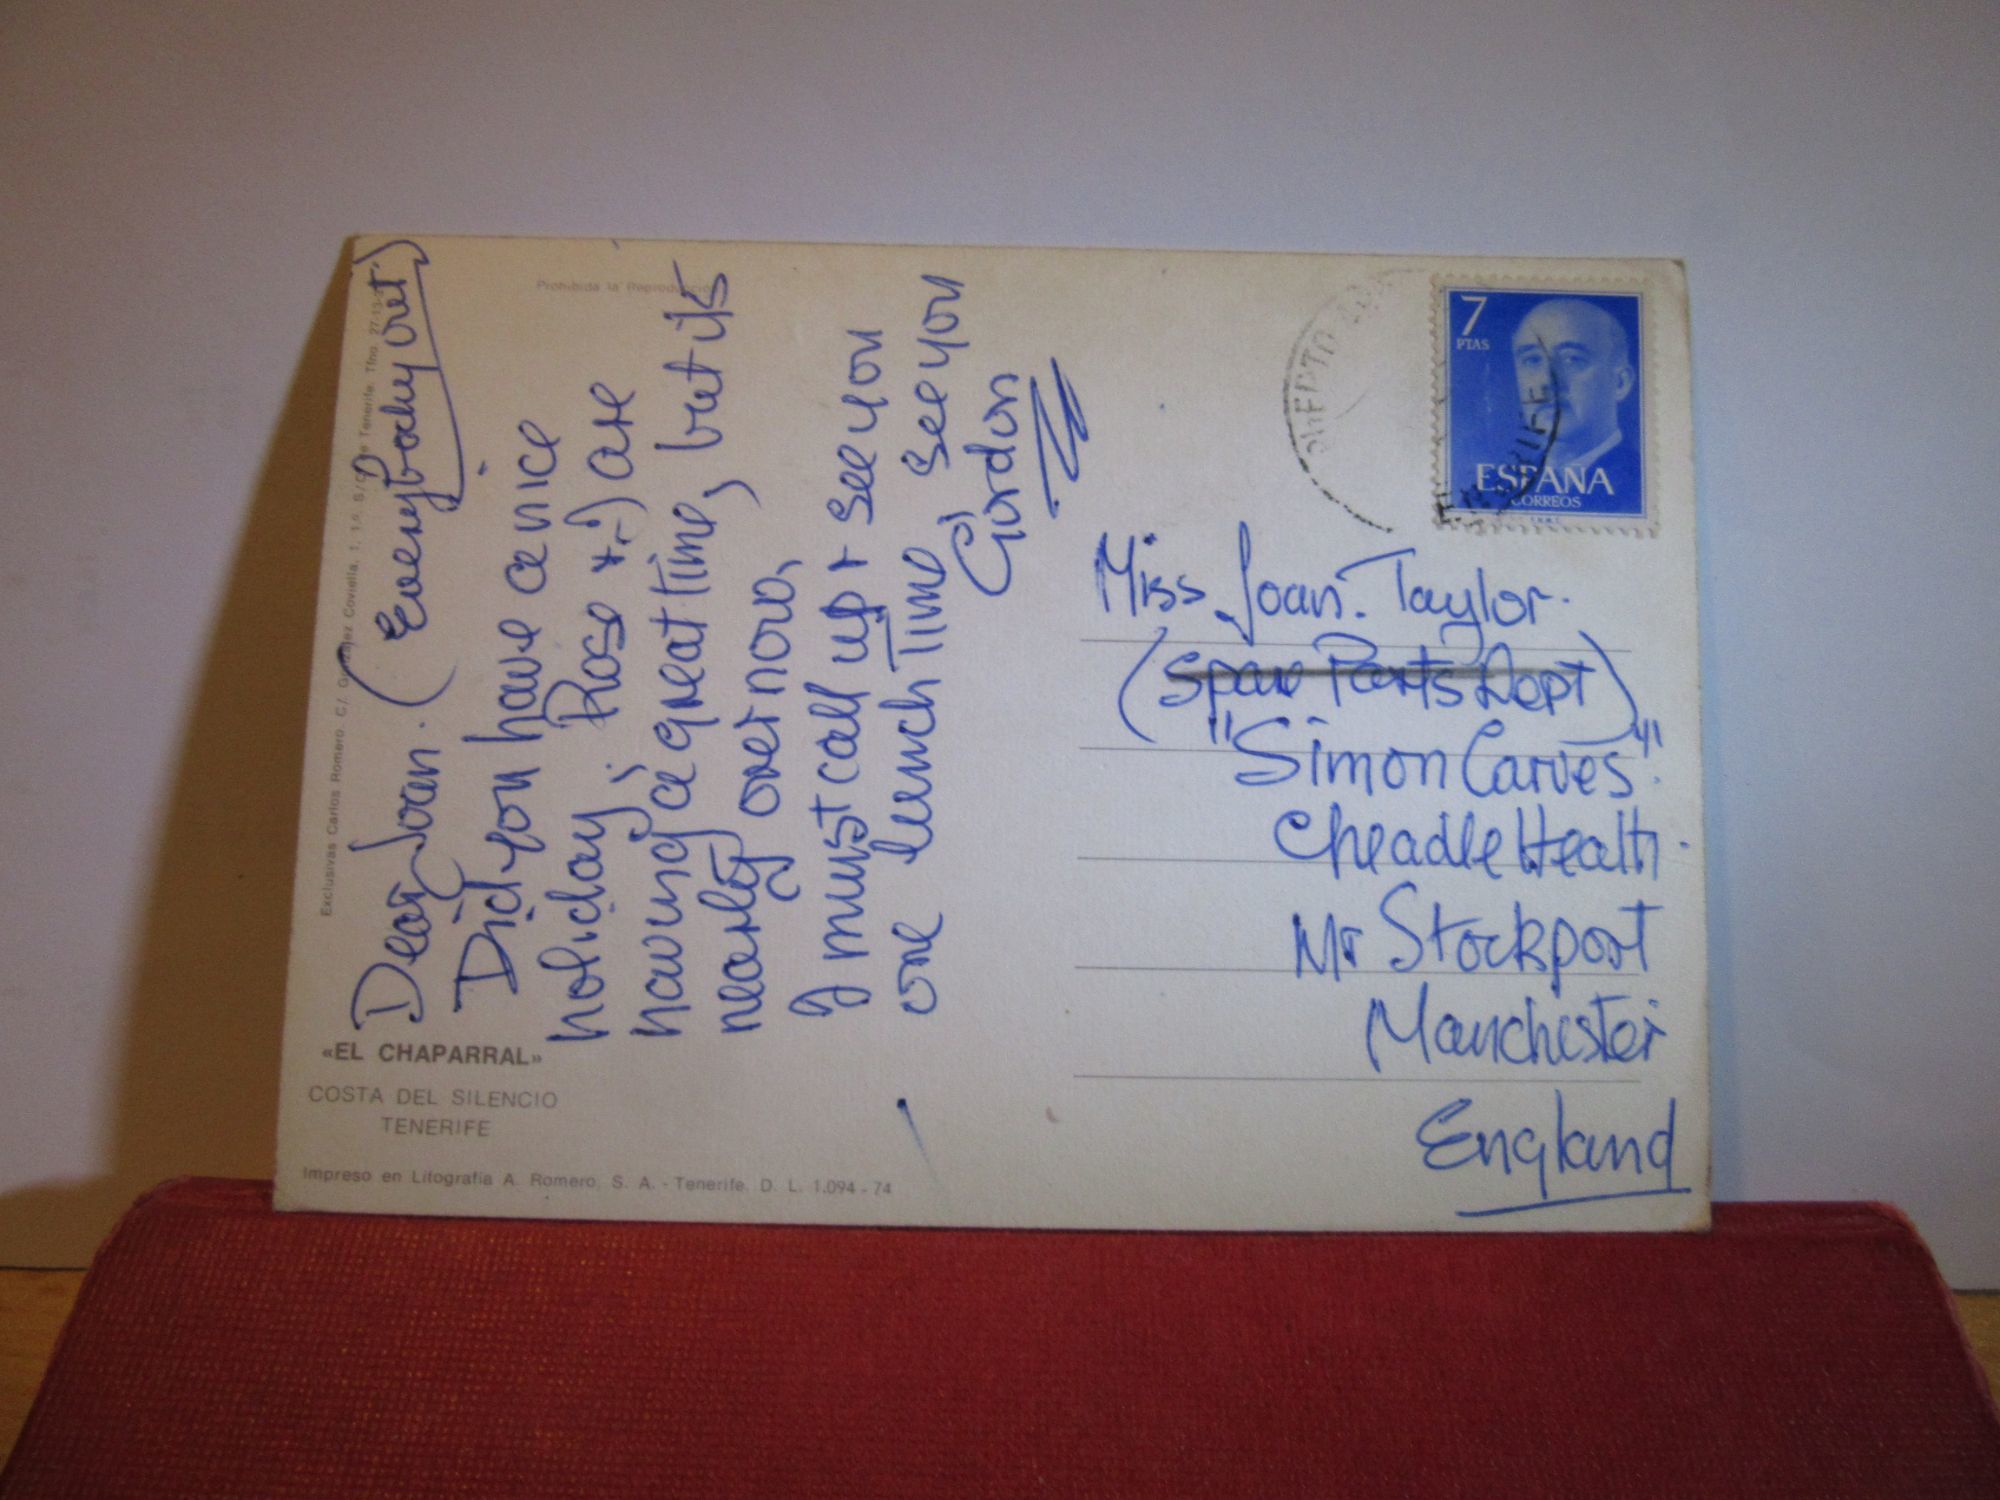 Dear Joan. (Everybody out)
Did you have a nice
holiday; Rose + I are
having a great time, but its
nearly over now,
I must call up + see you
one lunch time see you
Gordon
Miss Joan. Taylor.
(Spare Parts Dept)
"Simon Carves".
Cheadle Heath.
Nr Stockport
Manchester
England
7
PTAS
ESPAÑA
CORREOS
Prohibida la Reproducción
Exclusivas Carlos Romero. C/. González Coviella, 1, 1.º. S/C de Tenerife. Tfno
«EL CHAPARRAL»
COSTA DEL SILENCIO
TENERIFE
Impreso en Litografía A. Romero, S. A. - Tenerife. D. L. 1.094 - 74